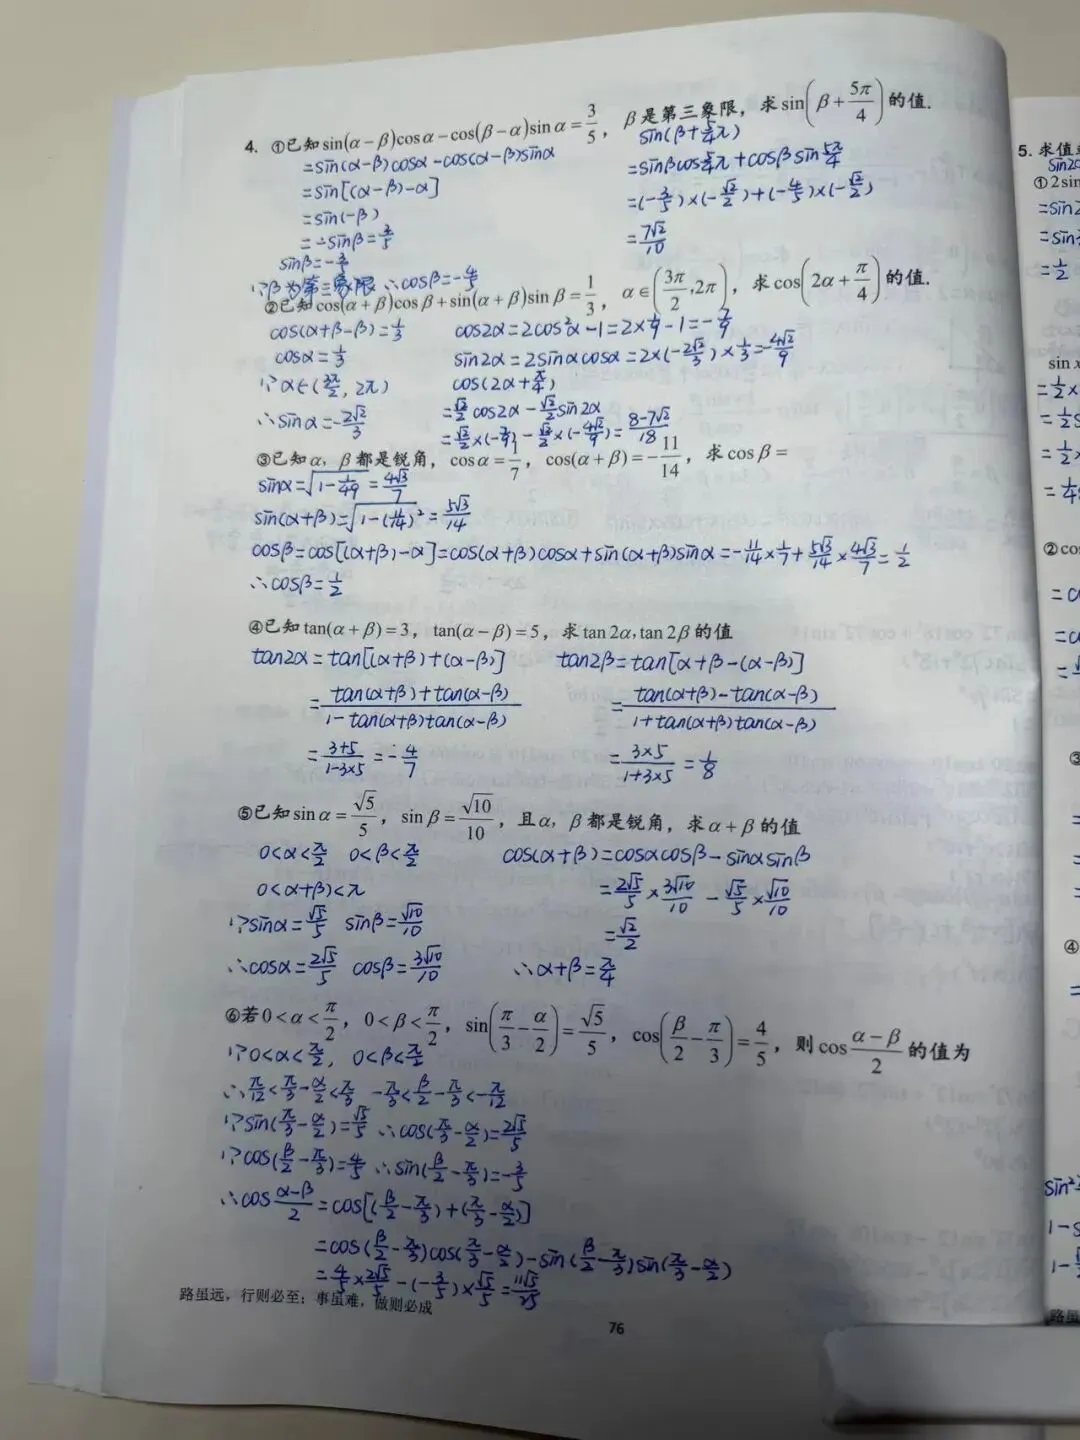 4. ①已知sin(α-β)cosα-cos(β-α)sinα=3/5，β是第三象限，求sin(β+5π/4)的值.
=sin(α-β)cosα-cos(α-β)sinα
=sin[(α-β)-α]
=sin(-β)
=-sinβ=3/5
sinβ=-3/5
∵β为第三象限 ∴cosβ=-4/5
sin(β+5/4π)
=sinβcos5/4π+cosβsin5π/4
=(-3/5)×(-√2/2)+(-4/5)×(-√2/2)
=7√2/10
②已知cos(α+β)cosβ+sin(α+β)sinβ=1/3，α∈(3π/2,2π)，求cos(2α+π/4)的值.
cos(α+β-β)=1/3
cosα=1/3
∵α∈(3π/2, 2π)
∴sinα=-2√2/3
cos2α=2cos²α-1=2×1/9-1=-7/9
sin2α=2sinαcosα=2×(-2√2/3)×1/3=-4√2/9
cos(2α+π/4)
=√2/2cos2α-√2/2sin2α
=√2/2×(-7/9)-√2/2×(-4√2/9)=8-7√2/18
③已知α，β都是锐角，cosα=1/7，cos(α+β)=-11/14，求cosβ=
sinα=√1-1/49=4√3/7
sin(α+β)=√1-(11/14)²=5√3/14
cosβ=cos[(α+β)-α]=cos(α+β)cosα+sin(α+β)sinα=-11/14×1/7+5√3/14×4√3/7=1/2
∴cosβ=1/2
④已知tan(α+β)=3，tan(α-β)=5，求tan2α,tan2β的值
tan2α=tan[(α+β)+(α-β)]
=tan(α+β)+tan(α-β)/1-tan(α+β)tan(α-β)
=3+5/1-3×5=-4/7
tan2β=tan[α+β-(α-β)]
=tan(α+β)-tan(α-β)/1+tan(α+β)tan(α-β)
=3×5/1+3×5=1/8
⑤已知sinα=√5/5，sinβ=√10/10，且α，β都是锐角，求α+β的值
0<α<π/2 0<β<π/2
0<α+β)<π
∵sinα=√5/5 sinβ=√10/10
∴cosα=2√5/5 cosβ=3√10/10
cos(α+β)=cosαcosβ-sinαsinβ
=2√5/5×3√10/10-√5/5×√10/10
=√2/2
∴α+β=π/4
⑥若0<α<π/2，0<β<π/2，sin(π/3-α/2)=√5/5，cos(β/2-π/3)=4/5，则cosα-β/2的值为
∵0<α<π/2, 0<β<π/2
∴π/12<π/3-α/2<π/3 -π/3<β/2-π/3<-π/12
∵sin(π/3-α/2)=√5/5 ∴cos(π/3-α/2)=2√5/5
∵cos(β/2-π/3)=4/5 ∴sin(β/2-π/3)=-3/5
∴cosα-β/2=cos[(β/2-π/3)+(π/3-α/2)]
=cos(β/2-π/3)cos(π/3-α/2)-sin(β/2-π/3)sin(π/3-α/2)
=4/5×2√5/5-(-3/5)×√5/5=11√5/25
路虽远，行则必至；事虽难，做则必成
76
5. 求值
sin2
①2sin
=sin2
=sin
=1/2
sin x
②co
③
④
sin²
1-s
1-
路虽